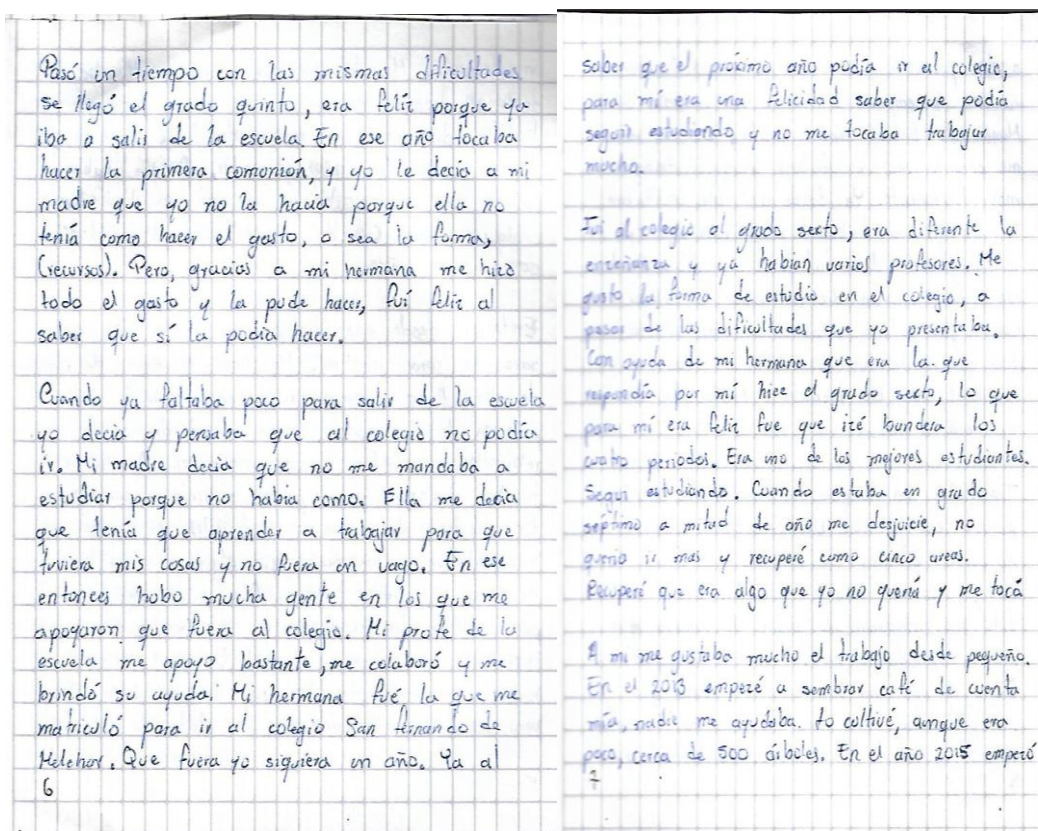 Pasó un tiempo con las mismas dificultades
se llegó el grado quinto, era feliz porque ya
iba a salir de la escuela. En ese año tocaba
hacer la primera comonión, y yo le decia a mi
madre que yo no la hacia porque ella no
tenía como hacer el gasto, o sea la forma,
(recursos). Pero, gracias a mi hermana me hizo
todo el gasto y la pude hacer, fuí feliz al
saber que sí la podía hacer.
Cuando ya faltaba poco para salir de la escuela
yo decia y pensaba que al colegio no podía
ir. Mi madre decia que no me mandaba a
estudiar porque no habia como. Ella me decia
que tenía que aprender a trabajar para que
tuviera mis cosas y no fuera un vago. En ese
entonces hubo mucha gente en los que me
apoyaron que fuera al colegio. Mi profe de la
escuela me apoyo bastante, me colaboró y me
brindó su ayuda. Mi hermana fué la que me
matriculó para ir al colegio San fernando de
Melchor. Que fuera yo siquiera un año. Ya al
6
saber que el próximo año podía ir al colegio,
para mí era una felicidad saber que podía
seguir estudiando y no me tocaba trabajar
mucho.
Fui al colegio al grado sexto, era difirente la
enzeñanza y ya habian varios profesores. Me
gusto la forma de estudio en el colegio, a
pesar de las dificultades que yo presentaba.
Con ayuda de mi hermana que era la. que
respondía por mí hice el grado sexto, lo que
para mí era feliz fue que izé bandera los
cuatro periodos. Era uno de los mejores estudiantes.
Segui estudiando. Cuando estaba en grado
séptimo a mitad de año me desjuicie, no
queria ir mas y recuperé como cinco areas.
Recuperé que era algo que yo no quería y me tocó
A mi me gustaba mucho el trabajo desde pequeño.
En el 2013 empezé a sembrar café de cuenta
mía, nadie me ayudaba. Lo cultivé, aunque era
poco, cerca de 500 árboles. En el año 2015 empezó
7